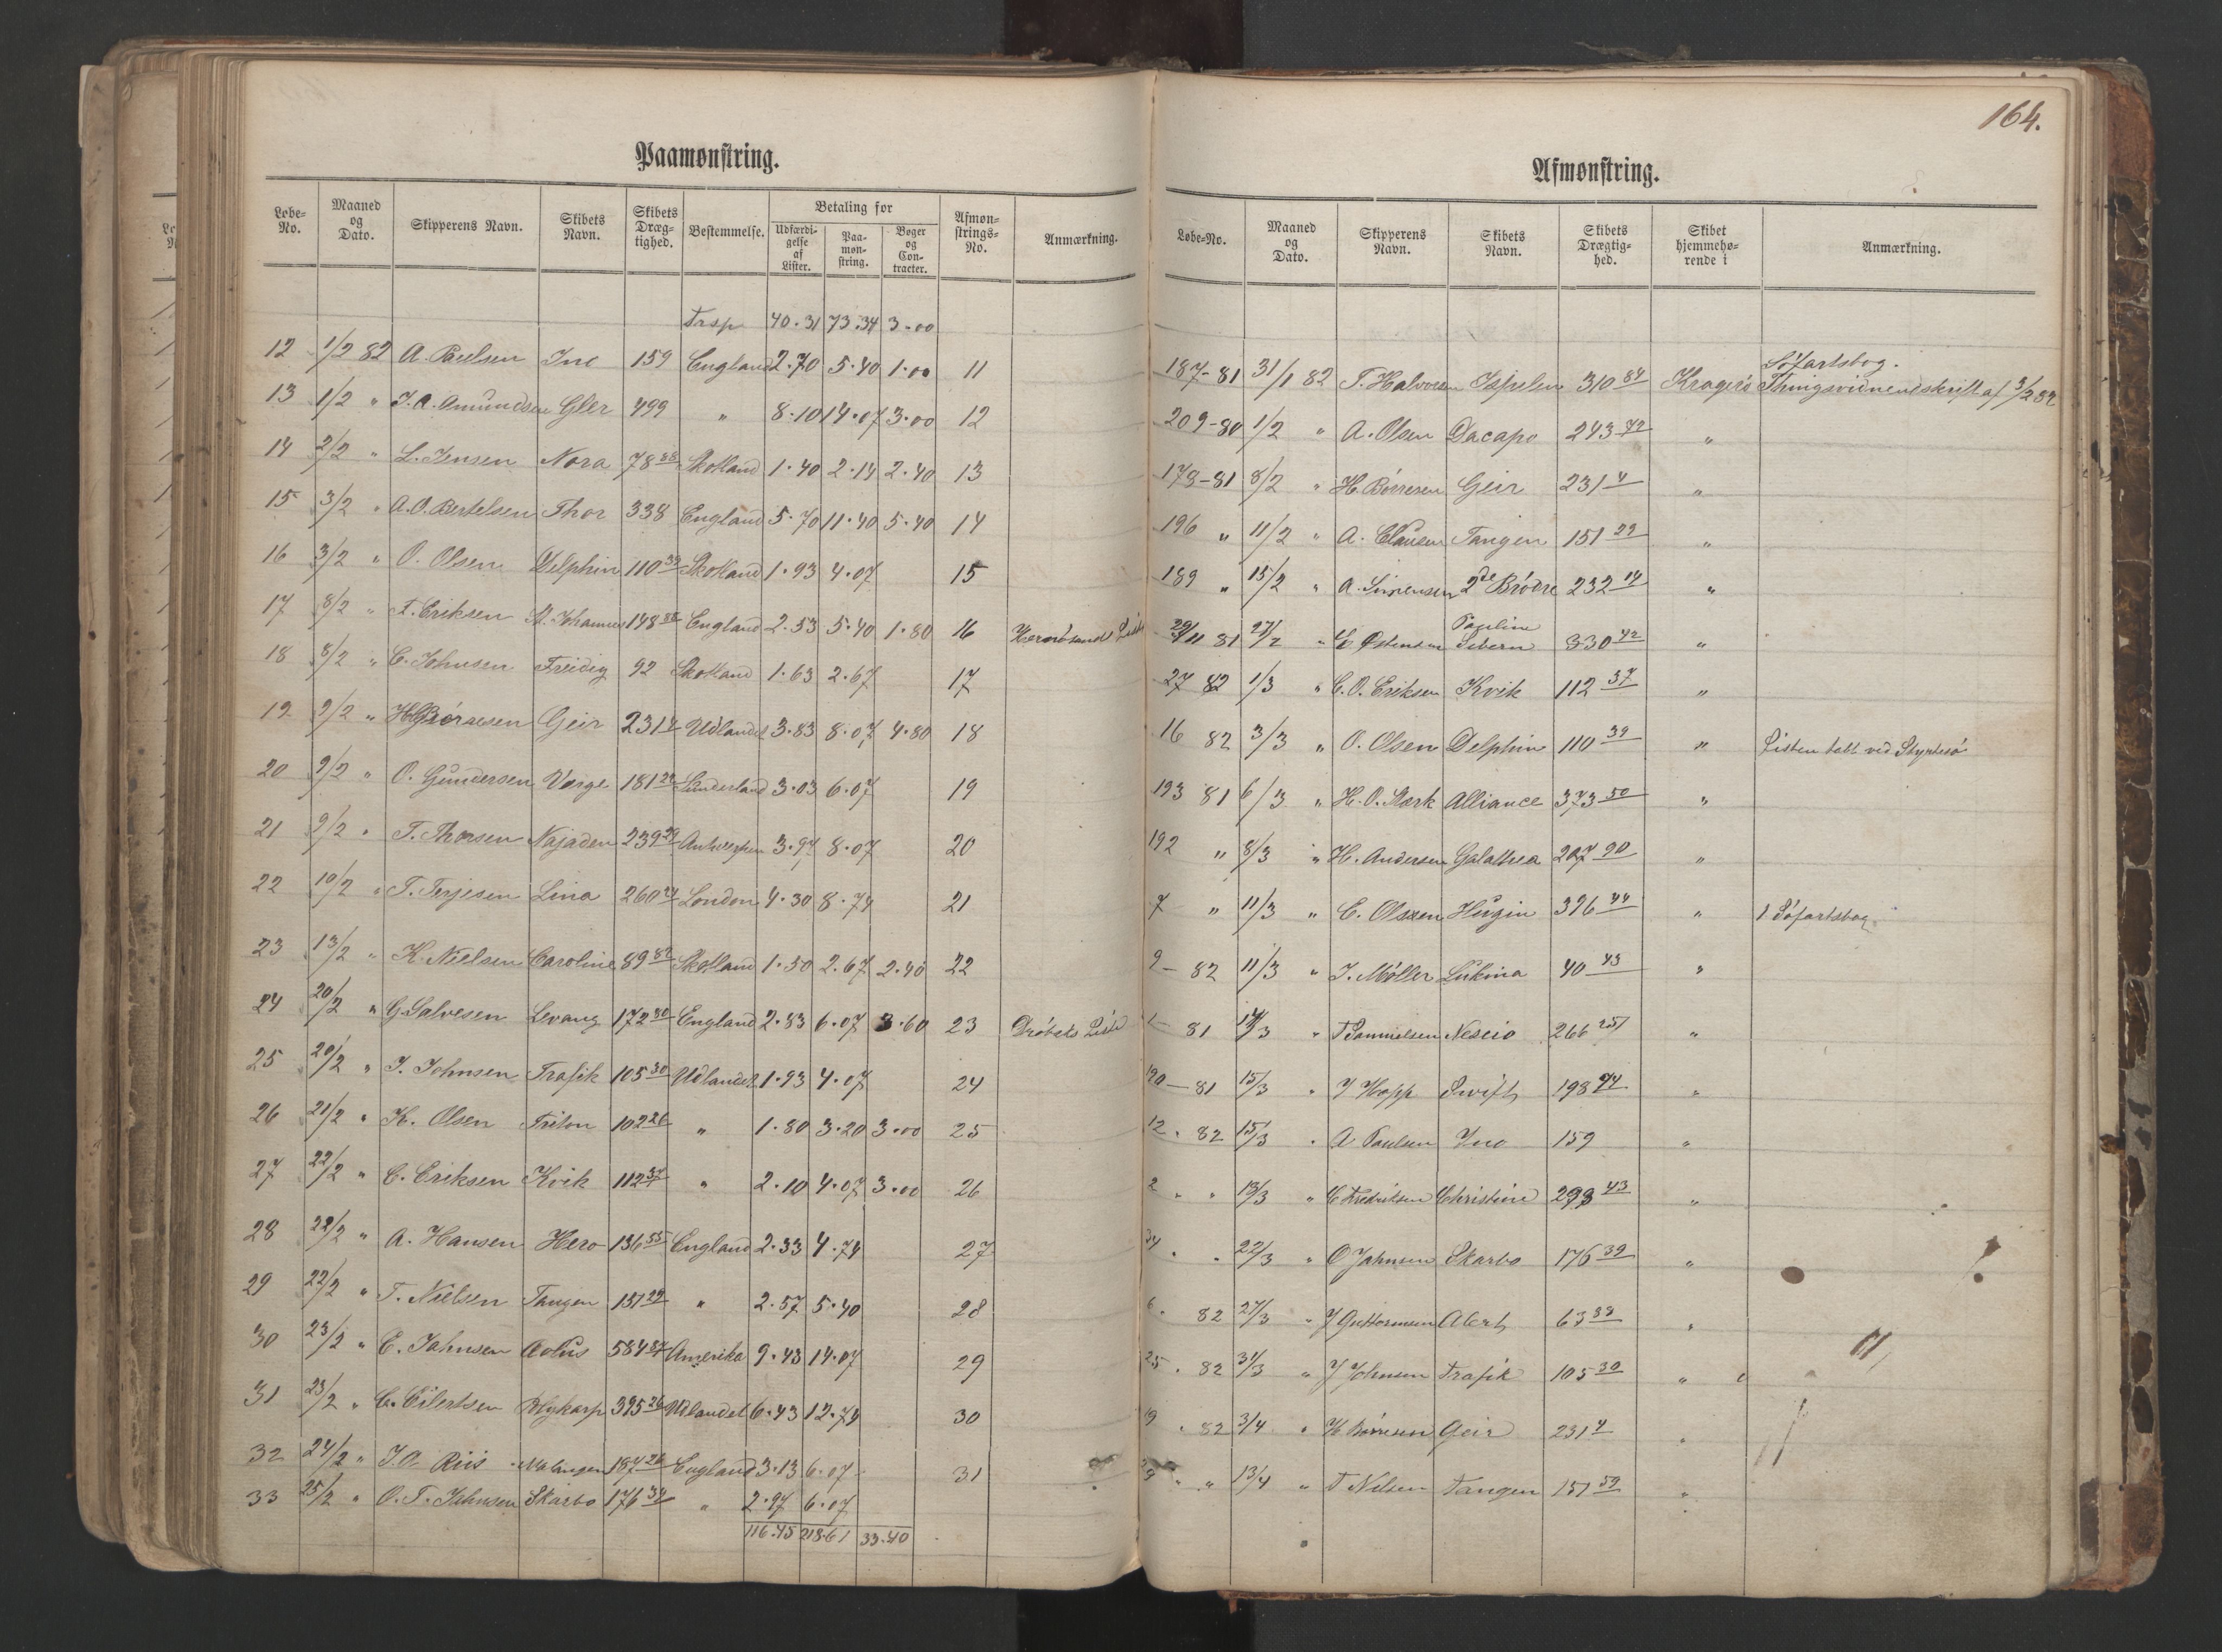 164.
Paamønstring.
Løbe-No. Maaned og Dato. Skipperens Navn. Skibets Navn. Skibets Dræg-tighed. Bestemmelse. Betaling for Udfærdi-gelse af Lister. Paa-møn-string. Bøger og Con-tracter. Afmøn-strings-No. Anmærkning.
Trsp 40.31 73.34 3.00
12 1/2 82 A. Paulsen Ino 159 England 2.70 5.40 1.00 11
13 1/2 " J. A. Amundsen Gler 499 " 8.10 14.07 3.00 12
14 2/2 " L. Jensen Nora 78 88 Skotland 1.40 2.14 2.40 13
15 3/2 " A. O. Bertelsen Thor 338 England 5.70 11.40 5.40 14
16 3/2 " O. Olsen Delphin 110 39 Skotland 1.93 4.07 15
17 8/2 " T. Eriksen St. Johannes 148 England 2.53 5.40 1.80 16
18 8/2 " C. Johnsen Freidig 92 Skotland 1.63 2.67 17
19 9/2 " H. Børresen Geir 231 4 Udlandet 3.83 8.07 4.80 18
20 9/2 " O. Gundersen Varge 181 29 Sunderland 3.03 6.07 19
21 9/2 " T. Thorsen Najaden 239 29 Antwerpen 3.97 8.07 20
22 10/2 " T. Terjesen Lina 260 London 4.30 8.74 21
23 13/2 " K. Nielsen Caroline 89 82 Skotland 1.50 2.67 2.40 22
24 20/2 " G. Salvesen Levang 172 80 England 2.83 6.07 3.60 23 Drøbaks Liste
25 20/2 " J. Johnsen Trafik 105 30 Udlandet 1.93 4.07 24
26 21/2 " K. Olsen Triton 102 26 " 1.80 3.20 3.00 25
27 22/2 " C. Eriksen Kvik 112 37 " 2.10 4.07 3.00 26
28 22/2 " A. Hansen Hero 136 55 England 2.33 4.74 27
29 22/2 " T. Nielsen Tangen 151 29 " 2.57 5.40 28
30 23/2 " E. Jahnsen Æolus 584 87 Amerika 9.43 14.07 29
31 23/2 " C. Eilertsen Polykarp 395 26 Udlandet 6.43 12.74 30
32 24/2 " J. A. Riis Malangen 187 26 England 3.13 6.07 31
33 25/2 " O. T. Jahnsen Skarbo 176 39 " 2.97 6.07
116.45 218.61 33.40
Afmønstring.
Løbe-No. Maaned og Dato. Skipperens Navn. Skibets Navn. Skibets Drægtig-hed. Skibet hjemmehø-rende i Anmærkning.
Søfartsbog.
187-81 31/1 82 T. Halvorsen 310 84 Kragerø Thingsvidneudskrift af 3/2 82
209-80 1/2 " A. Olsen Dacapo 243 72 "
178-81 8/2 " H. Børresen Geir 231 4 "
196 " 11/2 " A. Clausen Tangen 151 29 "
189 " 15/2 " A. Sørensen 2de Brødre 232 14 "
Pauline
81 27/2 " E Østensen 330 42 "
27 82 1/3 " C. O. Eriksen Kvik 112 37 "
16 82 3/3 " O. Olsen Delphin 110 39 " Listen tabt ved
193 81 6/3 " H. O. Stærk Alliance 373 50 "
192 " 8/3 " H. Andersen Galathea 207 90 "
7 " 11/3 " C. Olsen Hugin 396 44 " 1 Søfartsbog
9 - 82 11/3 " J. Møller Lukina 40 43 "
1 - 81 14/3 " T Samuelsen Nescio 266 25 "
190 - 81 15/3 " J Hopp Swift 198 74 "
12 . 82 15/3 " A Paulsen Ino 159 "
2 " " 18/3 " C Fredriksen Christine 293 43 "
34 " " 22/3 " O Jahnsen Skarbo 176 39 "
6 . 82 27/3 " J Guttormsen Alert 63 38 "
25 . 82 31/3 " J Johnsen Trafik 105 30 "
19 . 82 3/4 " H Børresen Geir 231 4 "
29 " " 13/4 " T Nilsen Tangen 151 59 "